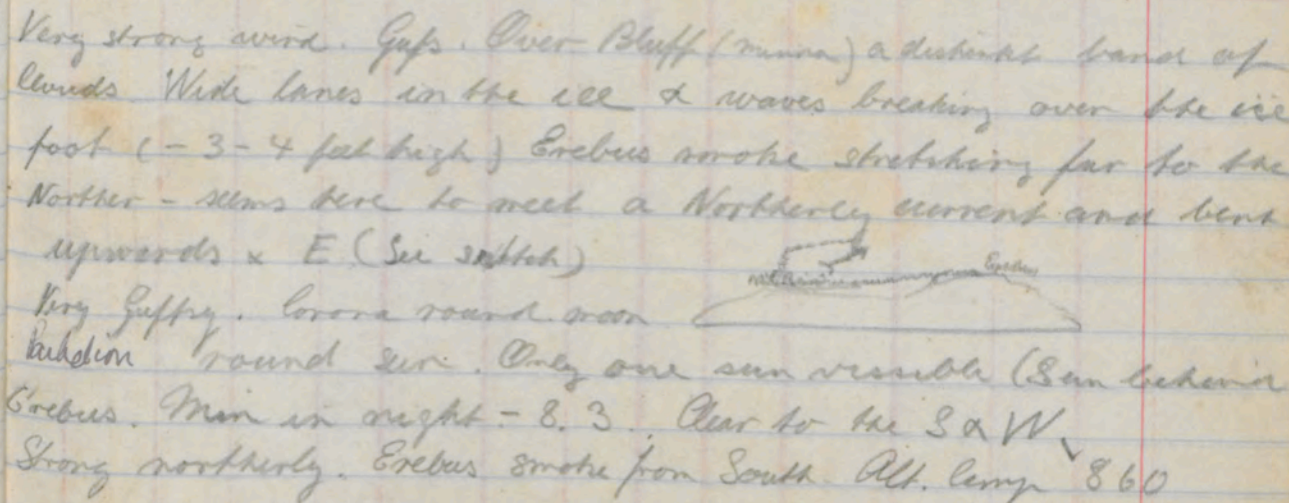 Very strong wind. Gufs. Over Bluff (minna) a distinkt band of
clouds. Wide lanes in the ice & waves breaking over the ice
foot (- 3 - 4 feet high) Erebus smoke stretching far to the
Norther - seems here to meet a Northerly current and bent
upwards & E (See sketch)
Erebus
Very Guffy. Corona round moon
round sun. Only one sun vissible (Sun behind
Erebus. Min in night - 8.3. Clear to the S & W.
Strong northerly. Erebus smoke from South Alt. 860